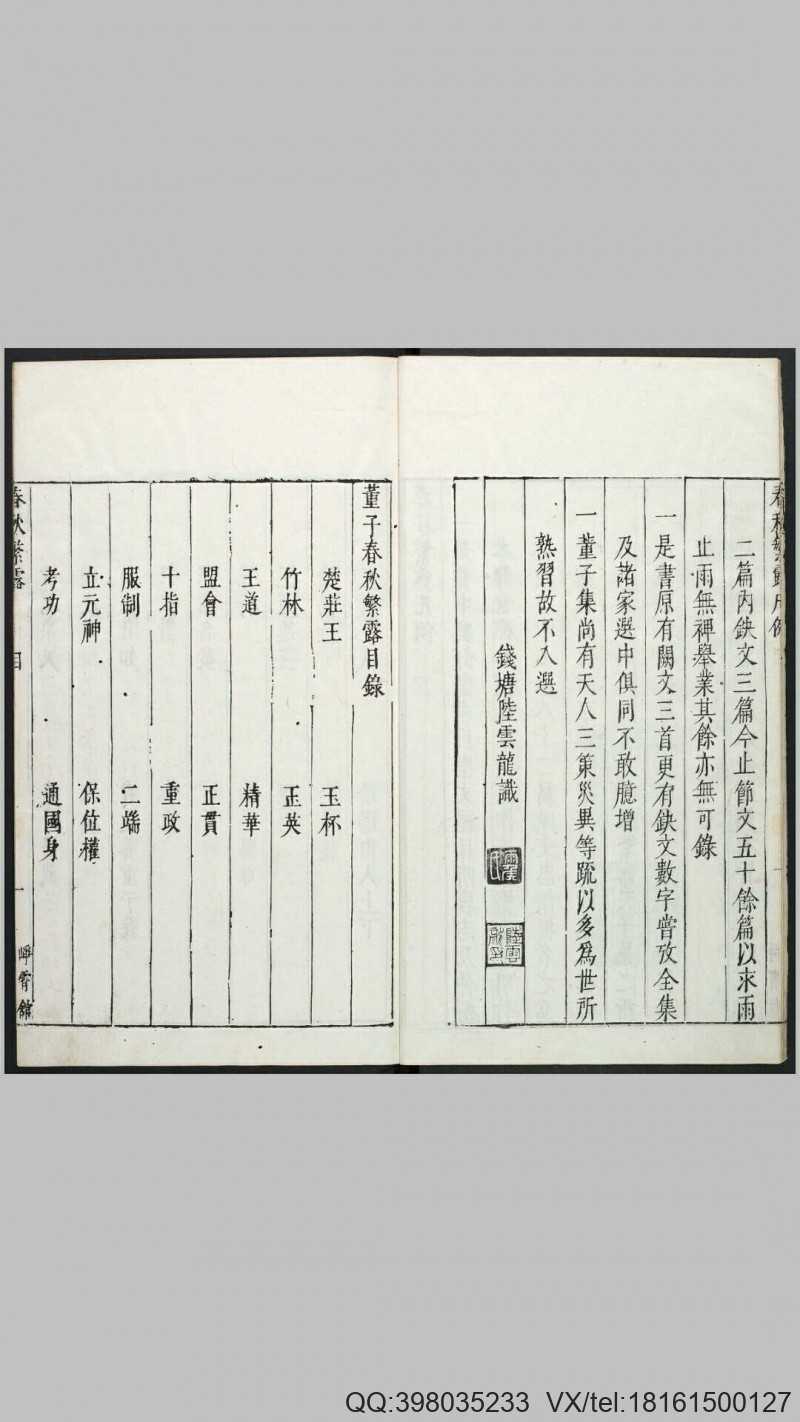 春秋繁露凡例
二篇内鈌文三篇今止節文五十餘篇以求雨
止雨無禆舉業其餘亦無可錄
一是書原有闕文三首更有鈌文數字嘗攷全集
及諸家選中俱同不敢臆增
一董子集尚有天人三策災異等疏以多爲世所
熟習故不入選
錢塘陸雲龍識
董子春秋繁露目錄
楚莊王 玉杯
竹林 玉英
王道 精華
盟會 正貫
十指 重政
服制 二端
立元神 保位權
考功 通國身
春秋繁露 目 一 崢霄館
QQ:398035233 VX/tel:18161500127